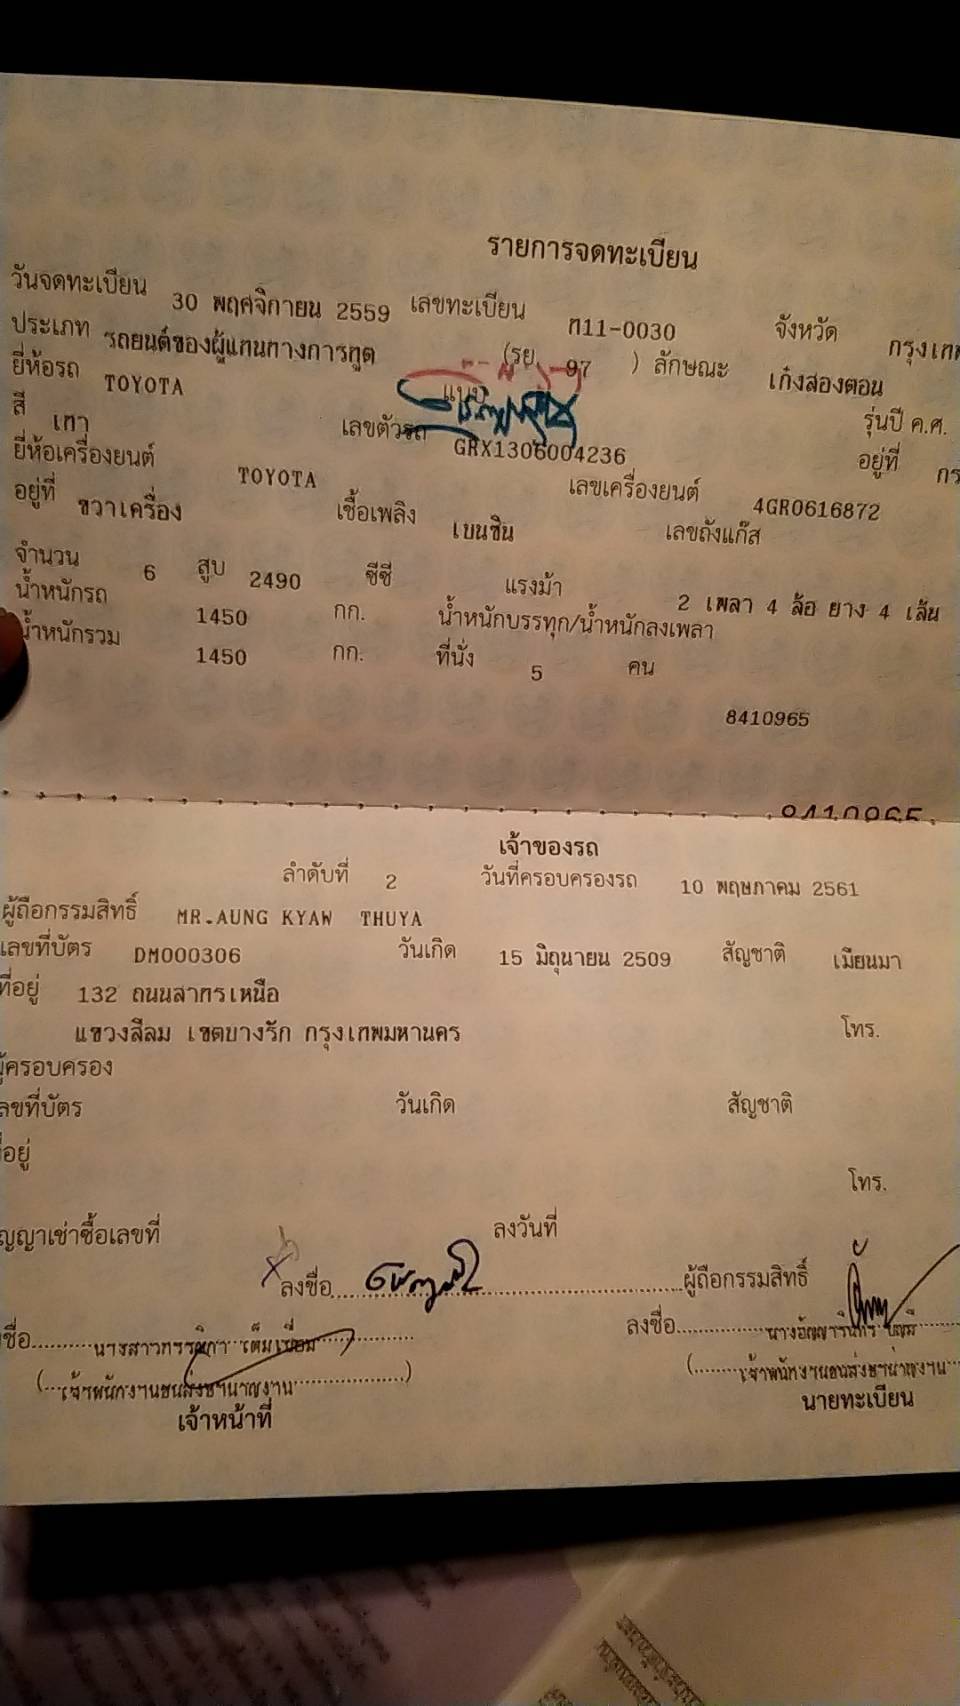 รายการจดทะเบียน
วันจดทะเบียน 30 พฤศจิกายน 2559 เลขทะเบียน ท11-0030 จังหวัด กรุงเทพ
ประเภท รถยนต์ของผู้แทนทางการทูต (รย. 97 ) ลักษณะ เก๋งสองตอน
ยี่ห้อรถ TOYOTA แบบ รุ่นปี ค.ศ.
สี เทา เลขตัวรถ GRX1306004236 อยู่ที่
ยี่ห้อเครื่องยนต์ TOYOTA เลขเครื่องยนต์ 4GR0616872
อยู่ที่ ขวาเครื่อง เชื้อเพลิง เบนซิน เลขถังแก๊ส
จำนวน 6 สูบ 2490 ซีซี แรงม้า 2 เพลา 4 ล้อ ยาง 4 เส้น
น้ำหนักรถ 1450 กก. น้ำหนักบรรทุก/น้ำหนักลงเพลา
น้ำหนักรวม 1450 กก. ที่นั่ง 5 คน
8410965
8410965
เจ้าของรถ
ลำดับที่ 2 วันที่ครอบครองรถ 10 พฤษภาคม 2561
ผู้ถือกรรมสิทธิ์ MR.AUNG KYAW THUYA
เลขที่บัตร DM000306 วันเกิด 15 มิถุนายน 2509 สัญชาติ เมียนมา
ที่อยู่ 132 ถนนสาทรเหนือ
แขวงสีลม เขตบางรัก กรุงเทพมหานคร โทร.
ผู้ครอบครอง
เลขที่บัตร วันเกิด สัญชาติ
ที่อยู่
โทร.
สัญญาเช่าซื้อเลขที่ ลงวันที่
ลงชื่อ ผู้ถือกรรมสิทธิ์
ลงชื่อ นางสาวกรรณิกา เต็มเปี่ยม ลงชื่อ
(เจ้าพนักงานขนส่งชำนาญงาน) (เจ้าพนักงานขนส่งชำนาญงาน
เจ้าหน้าที่ นายทะเบียน